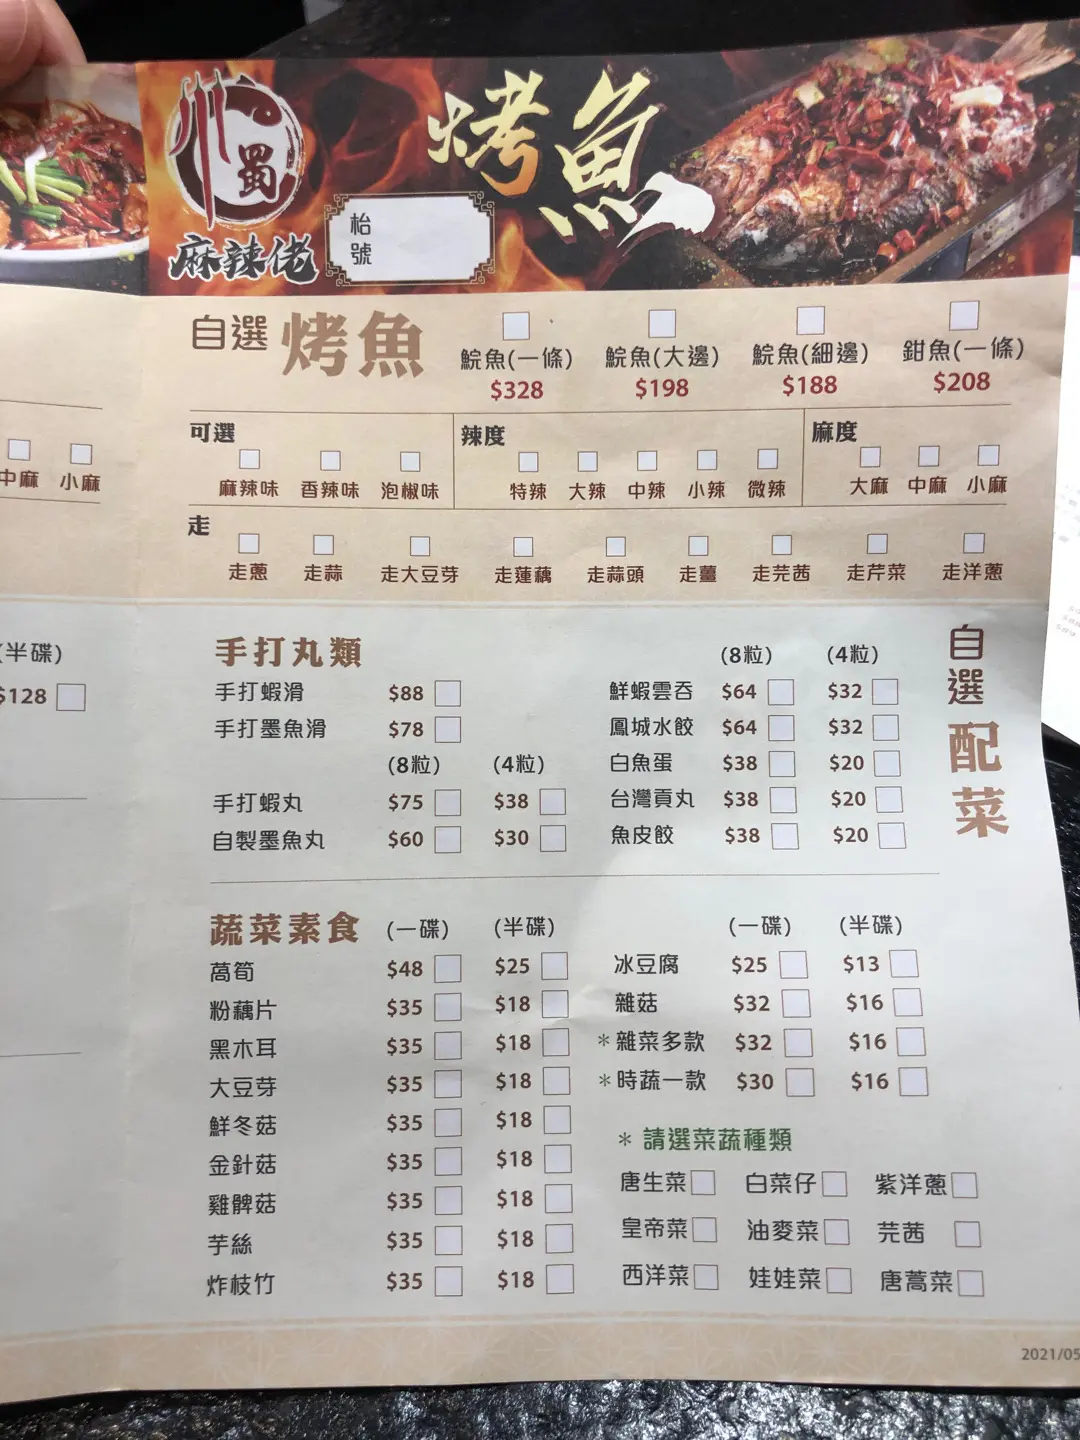 蜀
麻辣佬
烤魚
枱號
自選 烤魚
鯇魚(一條) 鯇魚(大邊) 鯇魚(細邊) 鉗魚(一條)
$328 $198 $188 $208
可選 辣度 麻度
麻辣味 香辣味 泡椒味 特辣 大辣 中辣 小辣 微辣 大麻 中麻 小麻
中麻 小麻
走
走蔥 走蒜 走大豆芽 走蓮藕 走蒜頭 走薑 走芫茜 走芹菜 走洋蔥
(半碟)
$128
自選 配菜
手打丸類
手打蝦滑 $88
手打墨魚滑 $78
(8粒) (4粒)
手打蝦丸 $75 $38
自製墨魚丸 $60 $30
(8粒) (4粒)
鮮蝦雲吞 $64 $32
鳳城水餃 $64 $32
白魚蛋 $38 $20
台灣貢丸 $38 $20
魚皮餃 $38 $20
蔬菜素食 (一碟) (半碟)
萵筍 $48 $25
粉藕片 $35 $18
黑木耳 $35 $18
大豆芽 $35 $18
鮮冬菇 $35 $18
金針菇 $35 $18
雞髀菇 $35 $18
芋絲 $35 $18
炸枝竹 $35 $18
(一碟) (半碟)
冰豆腐 $25 $13
雜菇 $32 $16
*雜菜多款 $32 $16
*時蔬一款 $30 $16
* 請選菜蔬種類
唐生菜 白菜仔 紫洋蔥
皇帝菜 油麥菜 芫茜
西洋菜 娃娃菜 唐蒿菜
2021/05